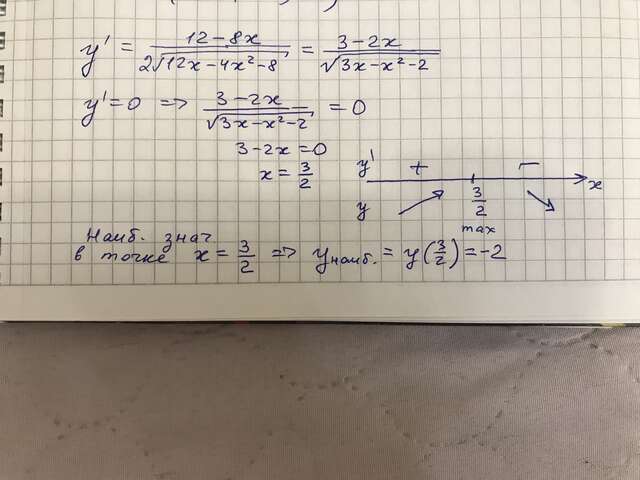 y' = 12 - 8x / 2√(12x - 4x² - 8) = 3 - 2x / √(3x - x² - 2)
y' = 0 => 3 - 2x / √(3x - x² - 2) = 0
3 - 2x = 0
x = 3/2
y' + - x
y 3/2
max
Наиб. знач
в точке x = 3/2 => y наиб. = y(3/2) = -2